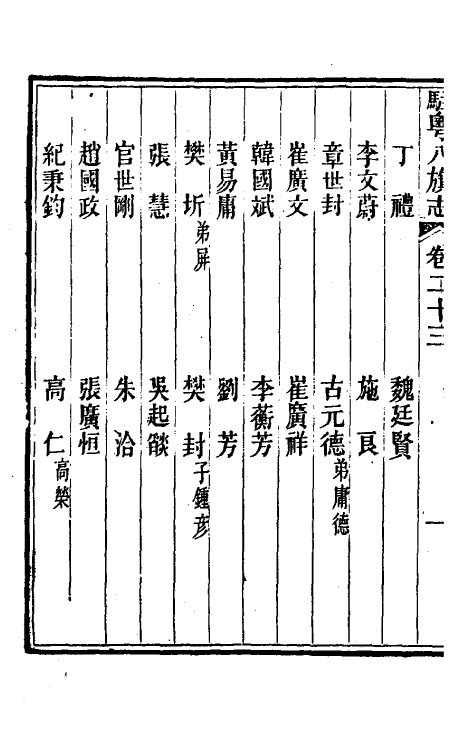 駐粵八旗志 卷二十三 一
丁禮 魏廷賢
李文蔚 施良
章世封 古元德弟庸德
崔廣文 崔廣祥
韓國斌 李蘅芳
黃易庸 劉芳
樊圻弟屏 樊封子鍾彥
張慧 吳起𦦨
官世剛 朱洽
趙國政 張廣恒
紀秉鈞 高仁高榮